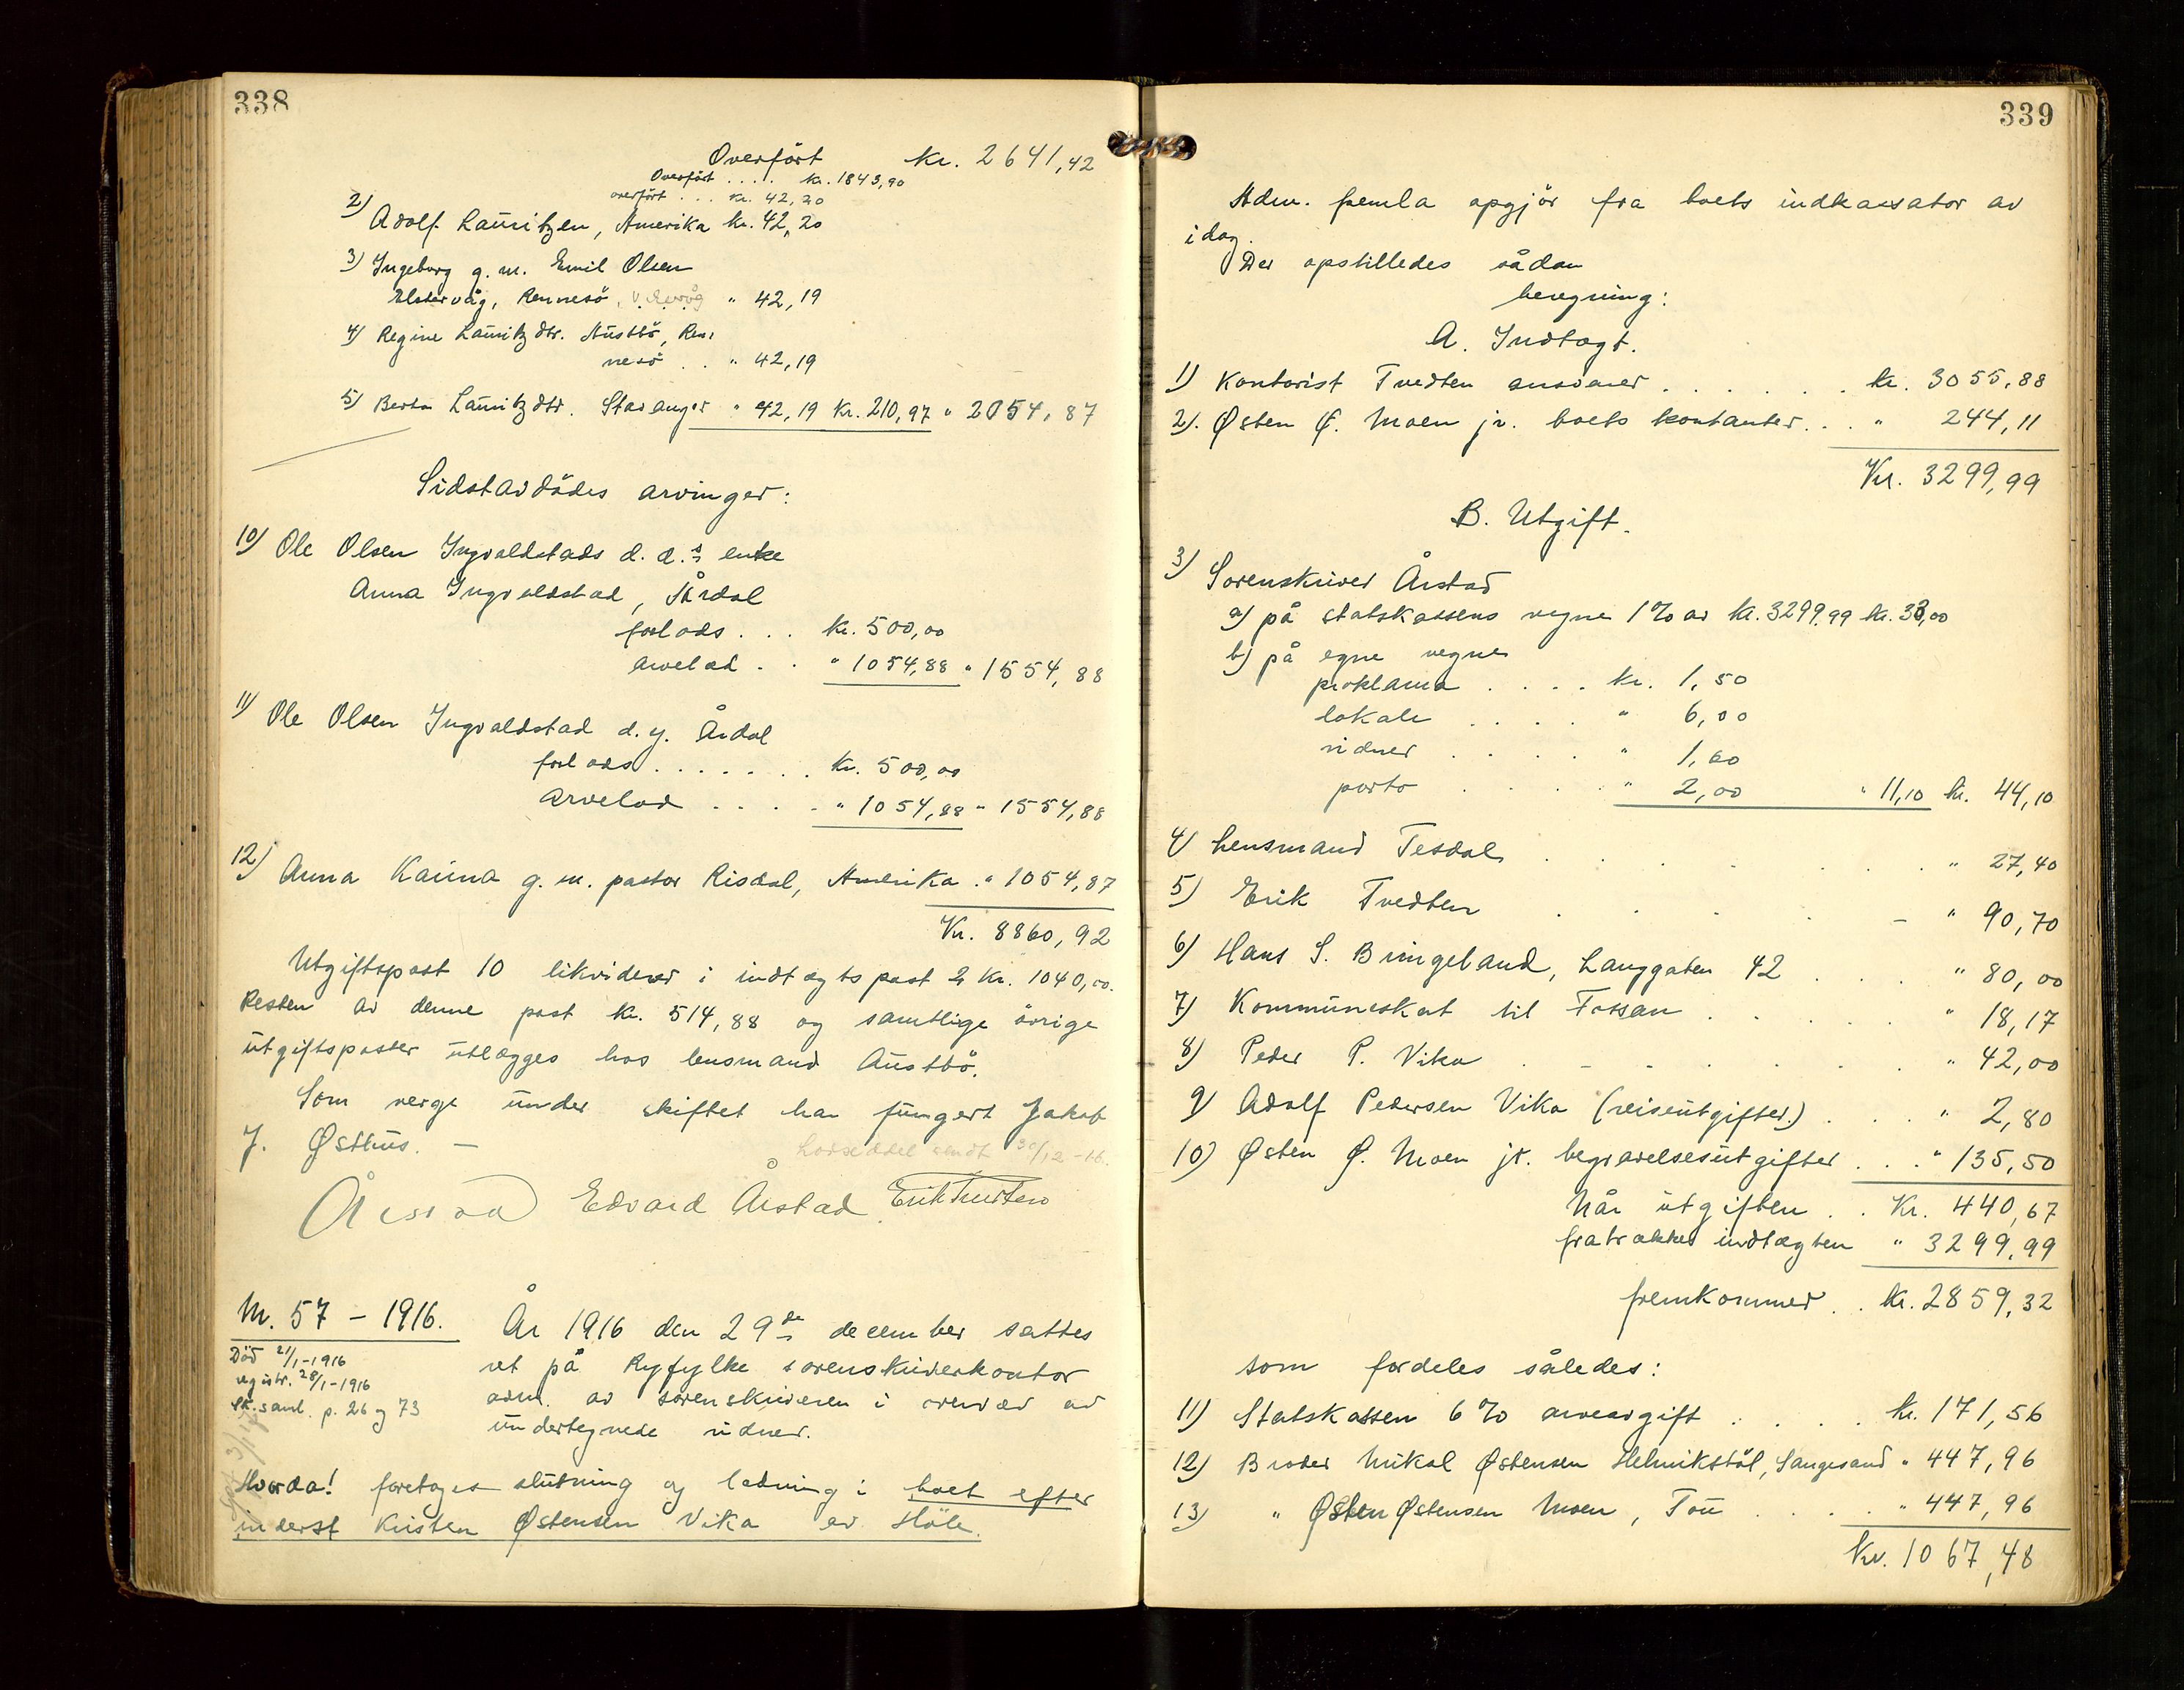 338
Overført kr. 2641,42
Overført .... kr. 1843,90
overført ... kr. 42,20
2) Adolf Lauritzen, Amerika kr. 42,20
3) Ingeborg g. m. Emil Olsen
Elstervåg, Rennesö, " 42,19
4) Regine Lauritzdtr. Austbö, Ren-
nesö .. " 42,19
5) Berta Lauritzdtr. Stavanger " 42,19 Kr. 210,97 " 2054,87
Sidstavdödes arvinger:
10) Ole Olsen Ingvaldstads d. æ.s enke
Anna Ingvaldstad, Årdal
forlods ... kr. 500,00
arvelod .. " 1054,88 " 1554,88
11) Ole Olsen Ingvaldstad d. y. Årdal
forlods ....... kr. 500,00
arvelod .... " 1054,88 " 1554,88
12) Anna Karina g. m. pastor Risdal, Amerika . " 1054,87
Kr. 8860,92
Utgiftspost 10 likvideres i indtægtspost 2 kr. 1040,00.
Resten av denne post kr. 514,88 og samtlige övrige
utgiftsposter utlægges hos lensmand Austbö.
Som verge under skiftet har fungert Jakob
J. Østhus. —
Lodseddel sendt 30/12-16.
Årstad Edvard Årstad Erik Tvedten
Nr. 57 - 1916.
Död 21/1-1916
registr. 28/1-1916
sk.saml. p. 26 og 73
År 1916 den 29de december sattes
ret på Ryfylke sorenskriverkontor
adm. av sorenskriveren i overvær av
undertegnede vidner.
Hvorda! foretages slutning og lodning i boet efter
inderst Kristen Østensen Vika av Höle.
339
Adm. femla opgjör fra boets indkassator av
idag.
Der opstilledes sådan
beregning:
A. Indtægt.
1) Kontorist Tvedten ansvarer ...... kr. 3055,88
2). Østen Ø. Moen jr. boets kontanter... " 244,11
Kr. 3299,99
B. Utgift.
3) Sorenskriver Årstad
a) på statskassens vegne 1% av kr. 3299,99 kr. 33,00
b) på egne vegne
proklama .... kr. 1,50
lokale .... " 6,00
vidner .... " 1,60
porto .... " 2,00 " 11,10 kr. 44,10
4) Lensmand Tesdal ...... " 27,40
5) Erik Tvedten .... — " 90,70
6) Hans S. Bringeland, Langgaten 42 ... " 80,00
7) Kommuneskat til Fossan ..... " 18,17
8) Peder P. Vika ....... " 42,00
9) Adolf Pedersen Vika (reiseutgifter.) ... " 2,80
10) Østen Ø. Moen jr. begravelsesutgifter ... " 135,50
Når utgiften .. Kr. 440,67
fratrækkes indtægten " 3299,99
fremkommer .. kr. 2859,32
som fordeles således:
11) Statskassen 6% arveavgift .... kr. 171,56
12) Broder Mikal Østensen Helmikstöl, Sangesand " 447,96
13) " Østen Østensen Moen, Tou .... " 447,96
Kr. 1067,48